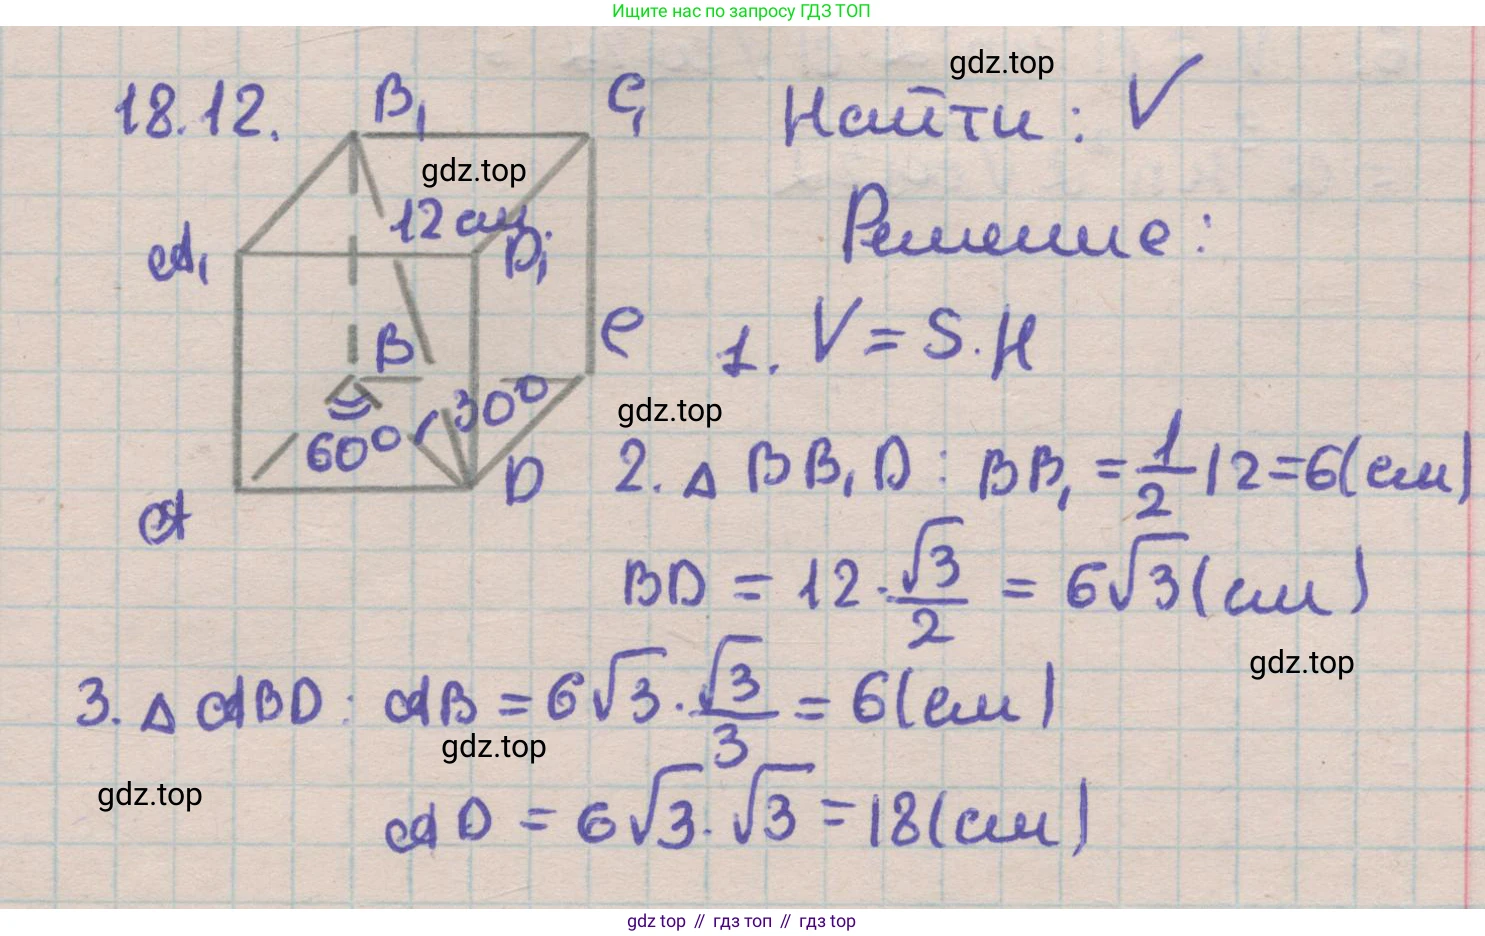 Ищите нас по запросу ГДЗ ТОП
gdz.top
18.12.
B₁
C₁
Найти: V
gdz.top
12 см.
A₁
D₁
Решение:
B
C
1. V = S·H
30°
60°
gdz.top
A
D
2. △ BB₁D: BB₁ = 1/2 12 = 6 (см)
BD = 12 · √3/2 = 6√3 (см)
gdz.top
3. △ ABD: AB = 6√3 · √3/3 = 6 (см)
gdz.top
gdz.top
AD = 6√3 · √3 = 18 (см)
gdz top // гдз топ // gdz top